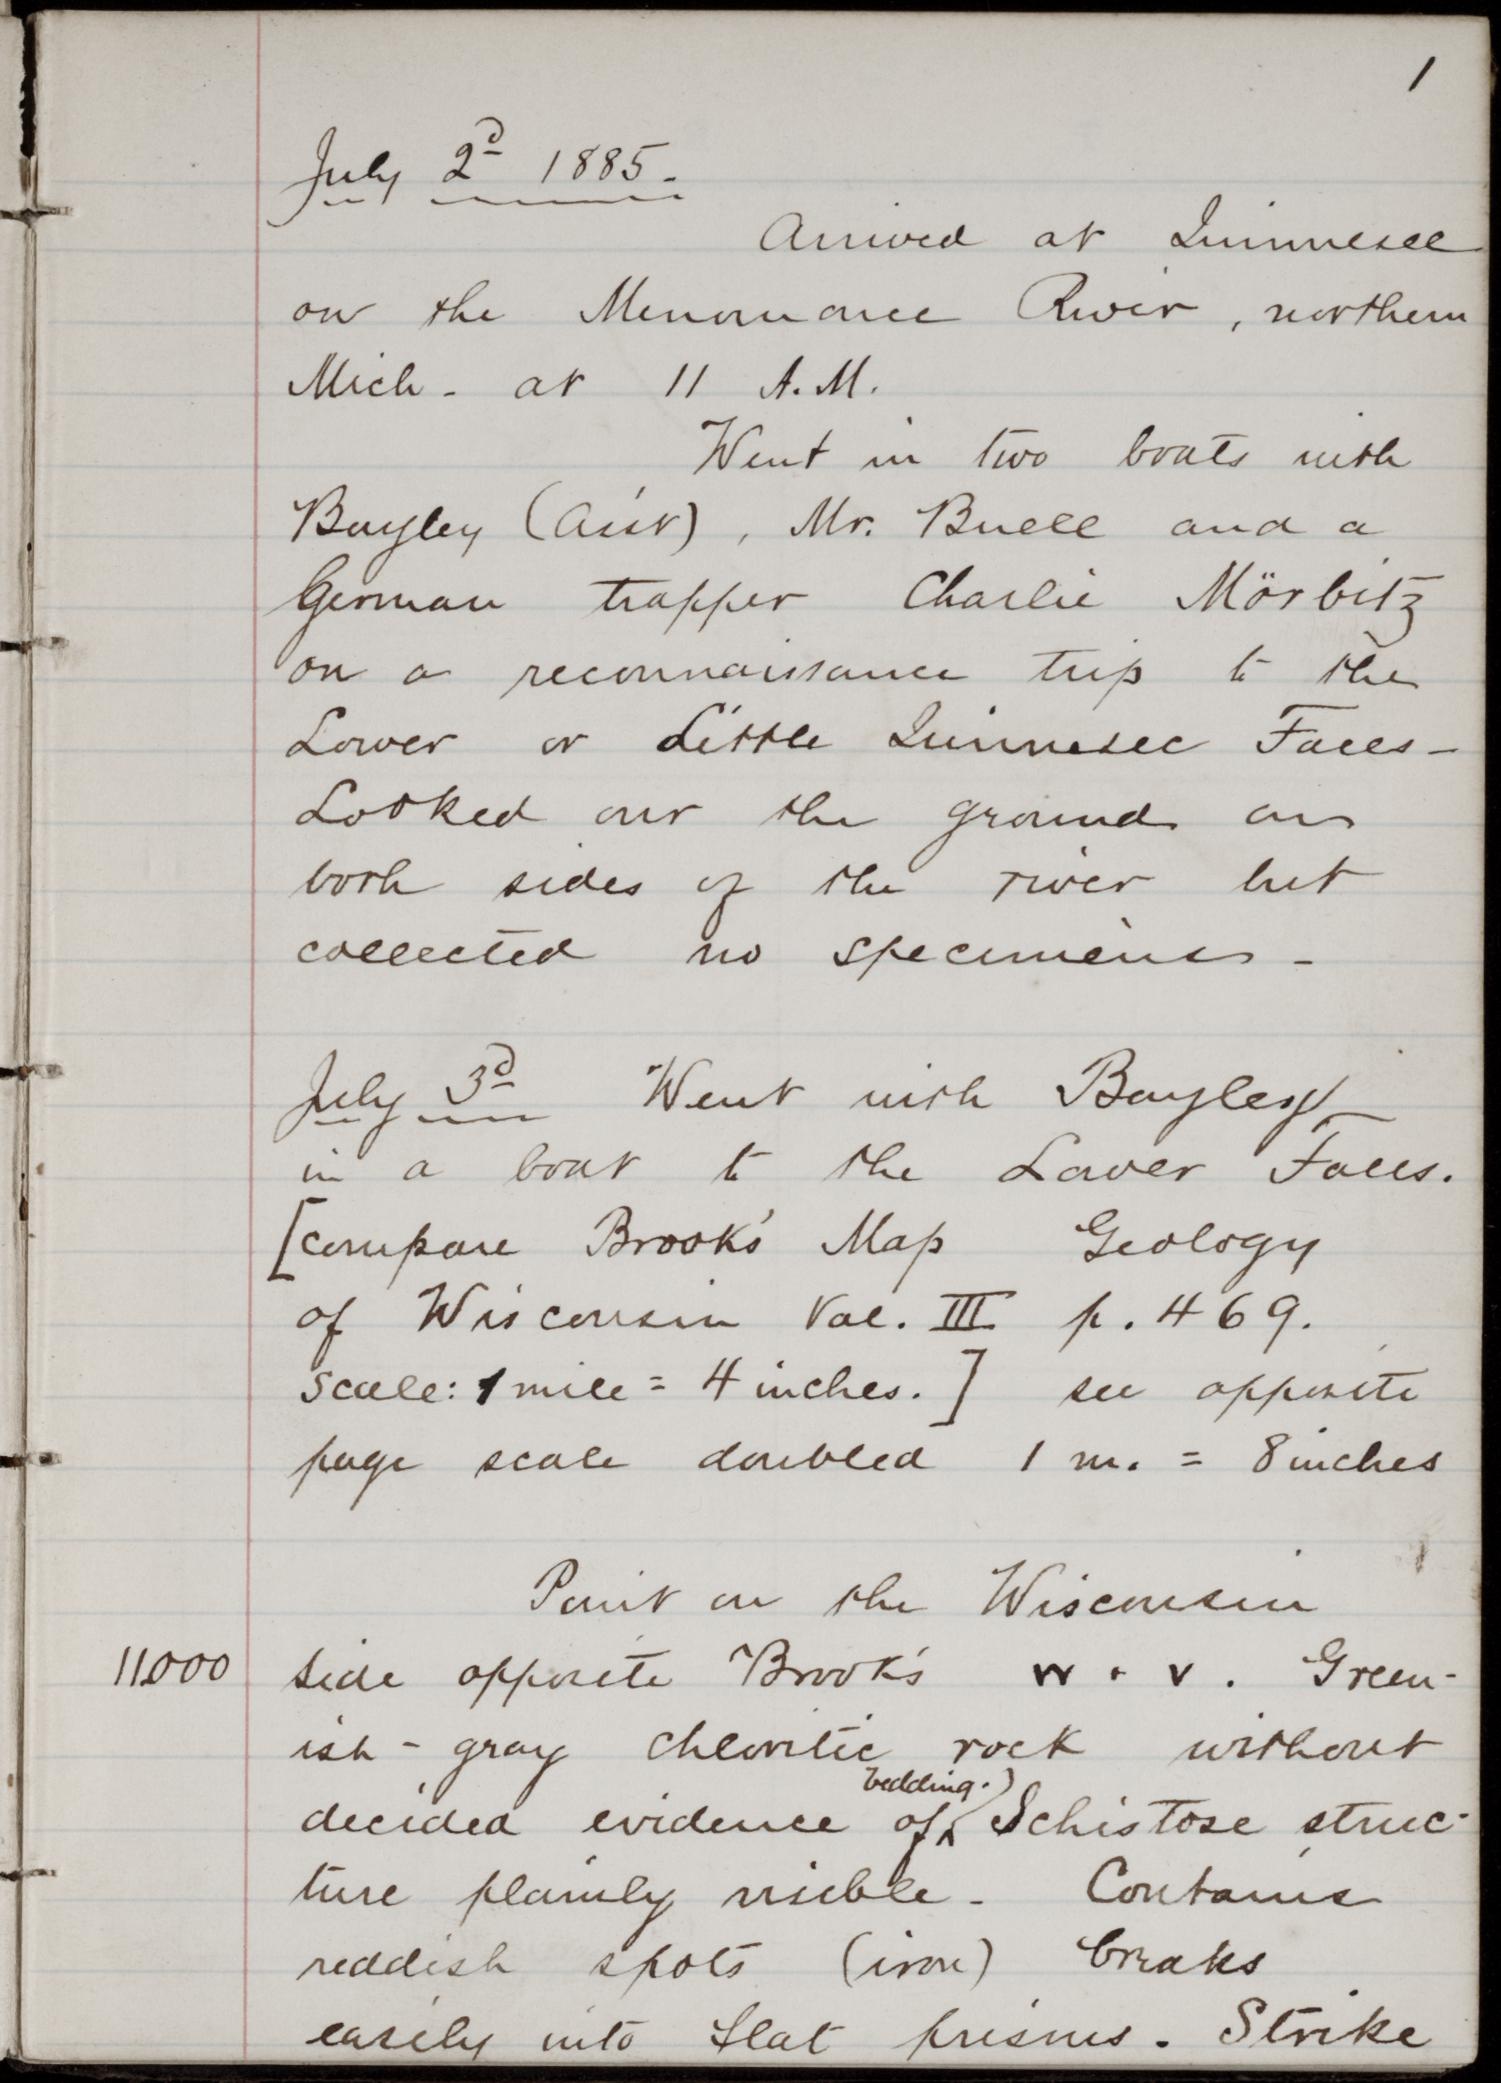 1
July 2d 1885.
Arrived at Quinnesec
on the Menomonee River, northern
Mich. at 11 A.M.
Went in two boats with
Bayley (Ass't), Mr. Buell and a
German trapper Charlie Mörbitz
on a reconnaissance trip to the
Lower or Little Quinnesec Falls-
Looked over the ground on
both sides of the river but
collected no specimens-
July 3d Went with Bayley
in a boat to the Lower Falls.
[compare Brook's Map Geology
of Wisconsin Vol. III p. 469.
Scale: 1 mile = 4 inches.] see opposite
page scale doubled 1 m. = 8 inches
Point on the Wisconsin
11000 side opposite Brook's w + v. Green-
ish-gray chloritic rock without
bedding.)
decided evidence of Schistose struc-
ture plainly visible- Contains
reddish spots (iron) breaks
easily into flat prisms. Strike